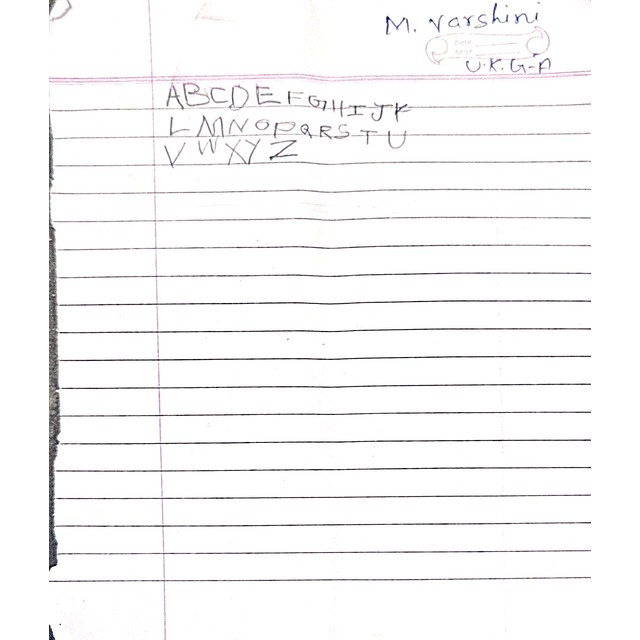 M. Varshini
Date
Page
U.K.G-A
ABCDEFGHIJK
LMNOPQRSTU
VWXYZ